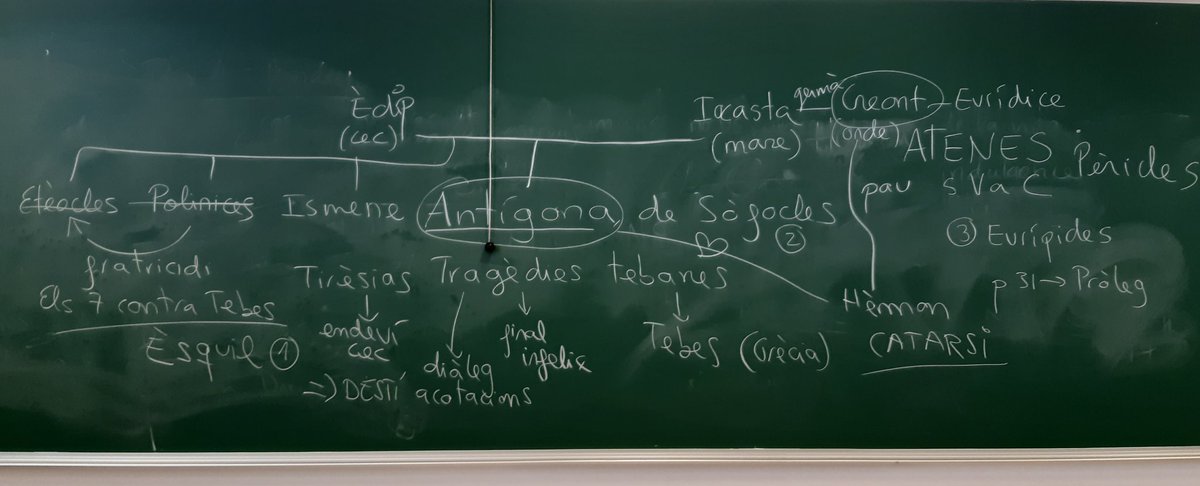 Èdip
(cec)
Iocasta germà Creont - Eurídice
(mare) (oncle)
ATENES Pèricles
pau s V a C
Etèocles Polinices Ismene Antígona de Sòfocles
②
③ Eurípides
fratricidi
Tirèsias Tragèdies tebanes
Hèmon p 31 → Pròleg
Els 7 contra Tebes
Èsquil ①
endeví
cec
final
infelix
Tebes (Grècia) CATARSI
diàleg
=> DESTÍ acotacions